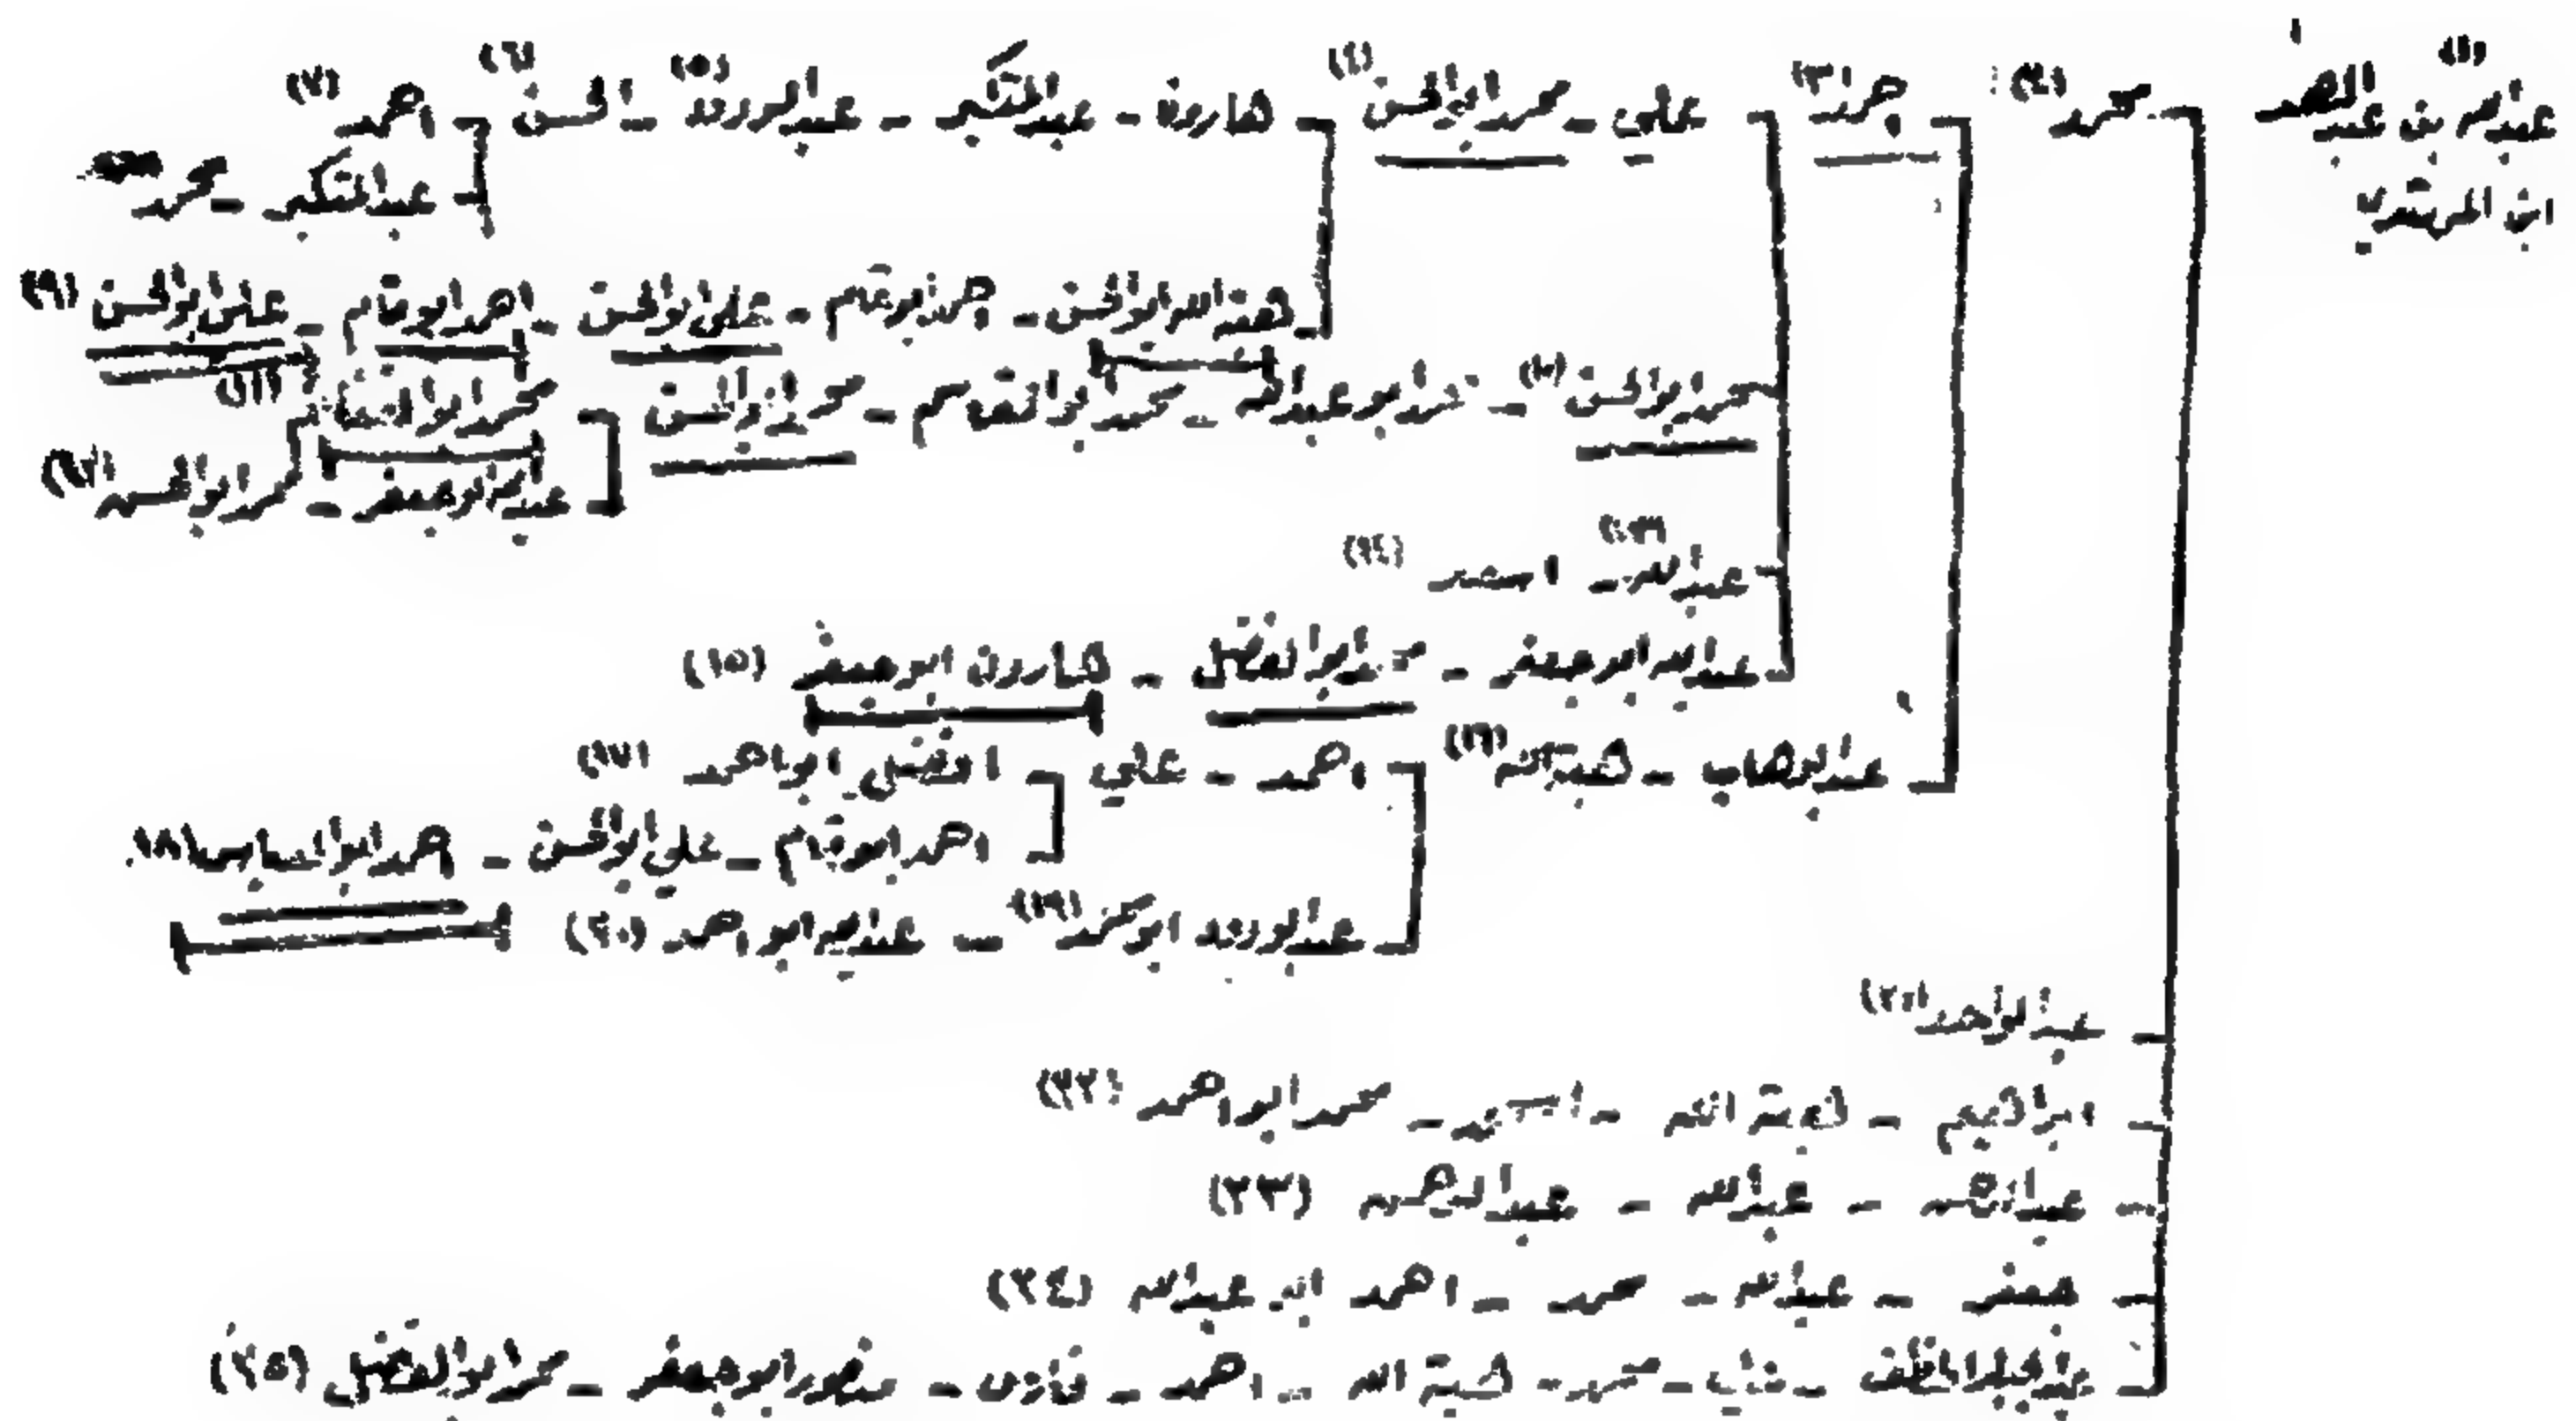 عبدالله بن عبد الصمد (١) محمد (٢) احمد (٣) علي - محمد ابوالحسن (٤) هارون - عبدالمتكبر - عبدالودود (٥) - الحسن (٦) احمد (٧)
ابن المهتدي
عبدالمتكبر - محمد
هبة الله ابوالحسن - - علي ابوالحسن - احمد ابو تمام - علي ابوالحسن (٩)
محمد ابوالحسن (١٠) - ابو عبدالله - محمد ابو القاسم - محمد ابوالحسن محمد ابو الغنائم (١١)
عبدالله ابوجعفر - محمد ابوالحسن (١٢)
عبدالله (١٣) - (١٤)
عبدالله ابو جعفر - محمد ابو الفضل - هارون ابو جعفر (١٥)
عبدالوهاب - هبة الله (١٦) احمد - علي الفضل ابو احمد (١٧)
احمد ابو تمام - علي ابوالحسن - احمد ابو العباس (١٨)
عبدالودود ابو محمد (١٩) - عبدالله ابو احمد (٢٠)
عبدالواحد (٢١)
ابراهيم - هبة الله - - محمد ابو احمد (٢٢)
- عبدالله - عبدالرحمن (٢٣)
جعفر - عبدالله - محمد - احمد ابو عبدالله (٢٤)
- علي - محمد - هبة الله - احمد - - منصور ابو جعفر - محمد ابو الفضل (٢٥)